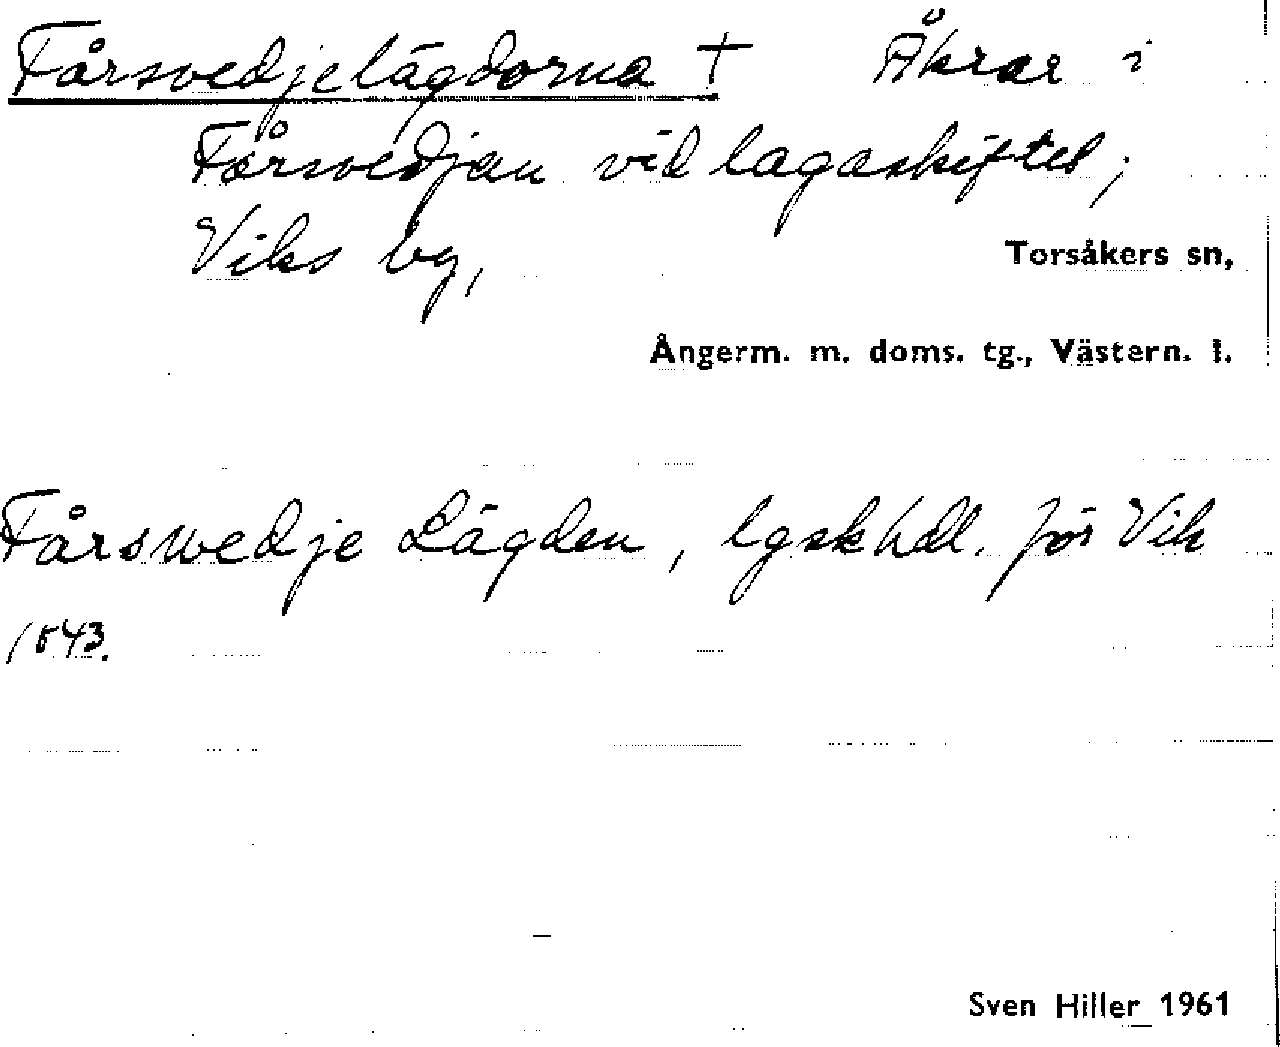 Fårsvedjelägdorna † Åkrar i
Fårsvedjan vid lagaskiftet;
Viks by,
Torsåkers sn,
Ångerm. m. doms. tg., Västern. l.
Fårswedje Lägden, lgskhdl. för Vik
1843.
Sven Hiller 1961